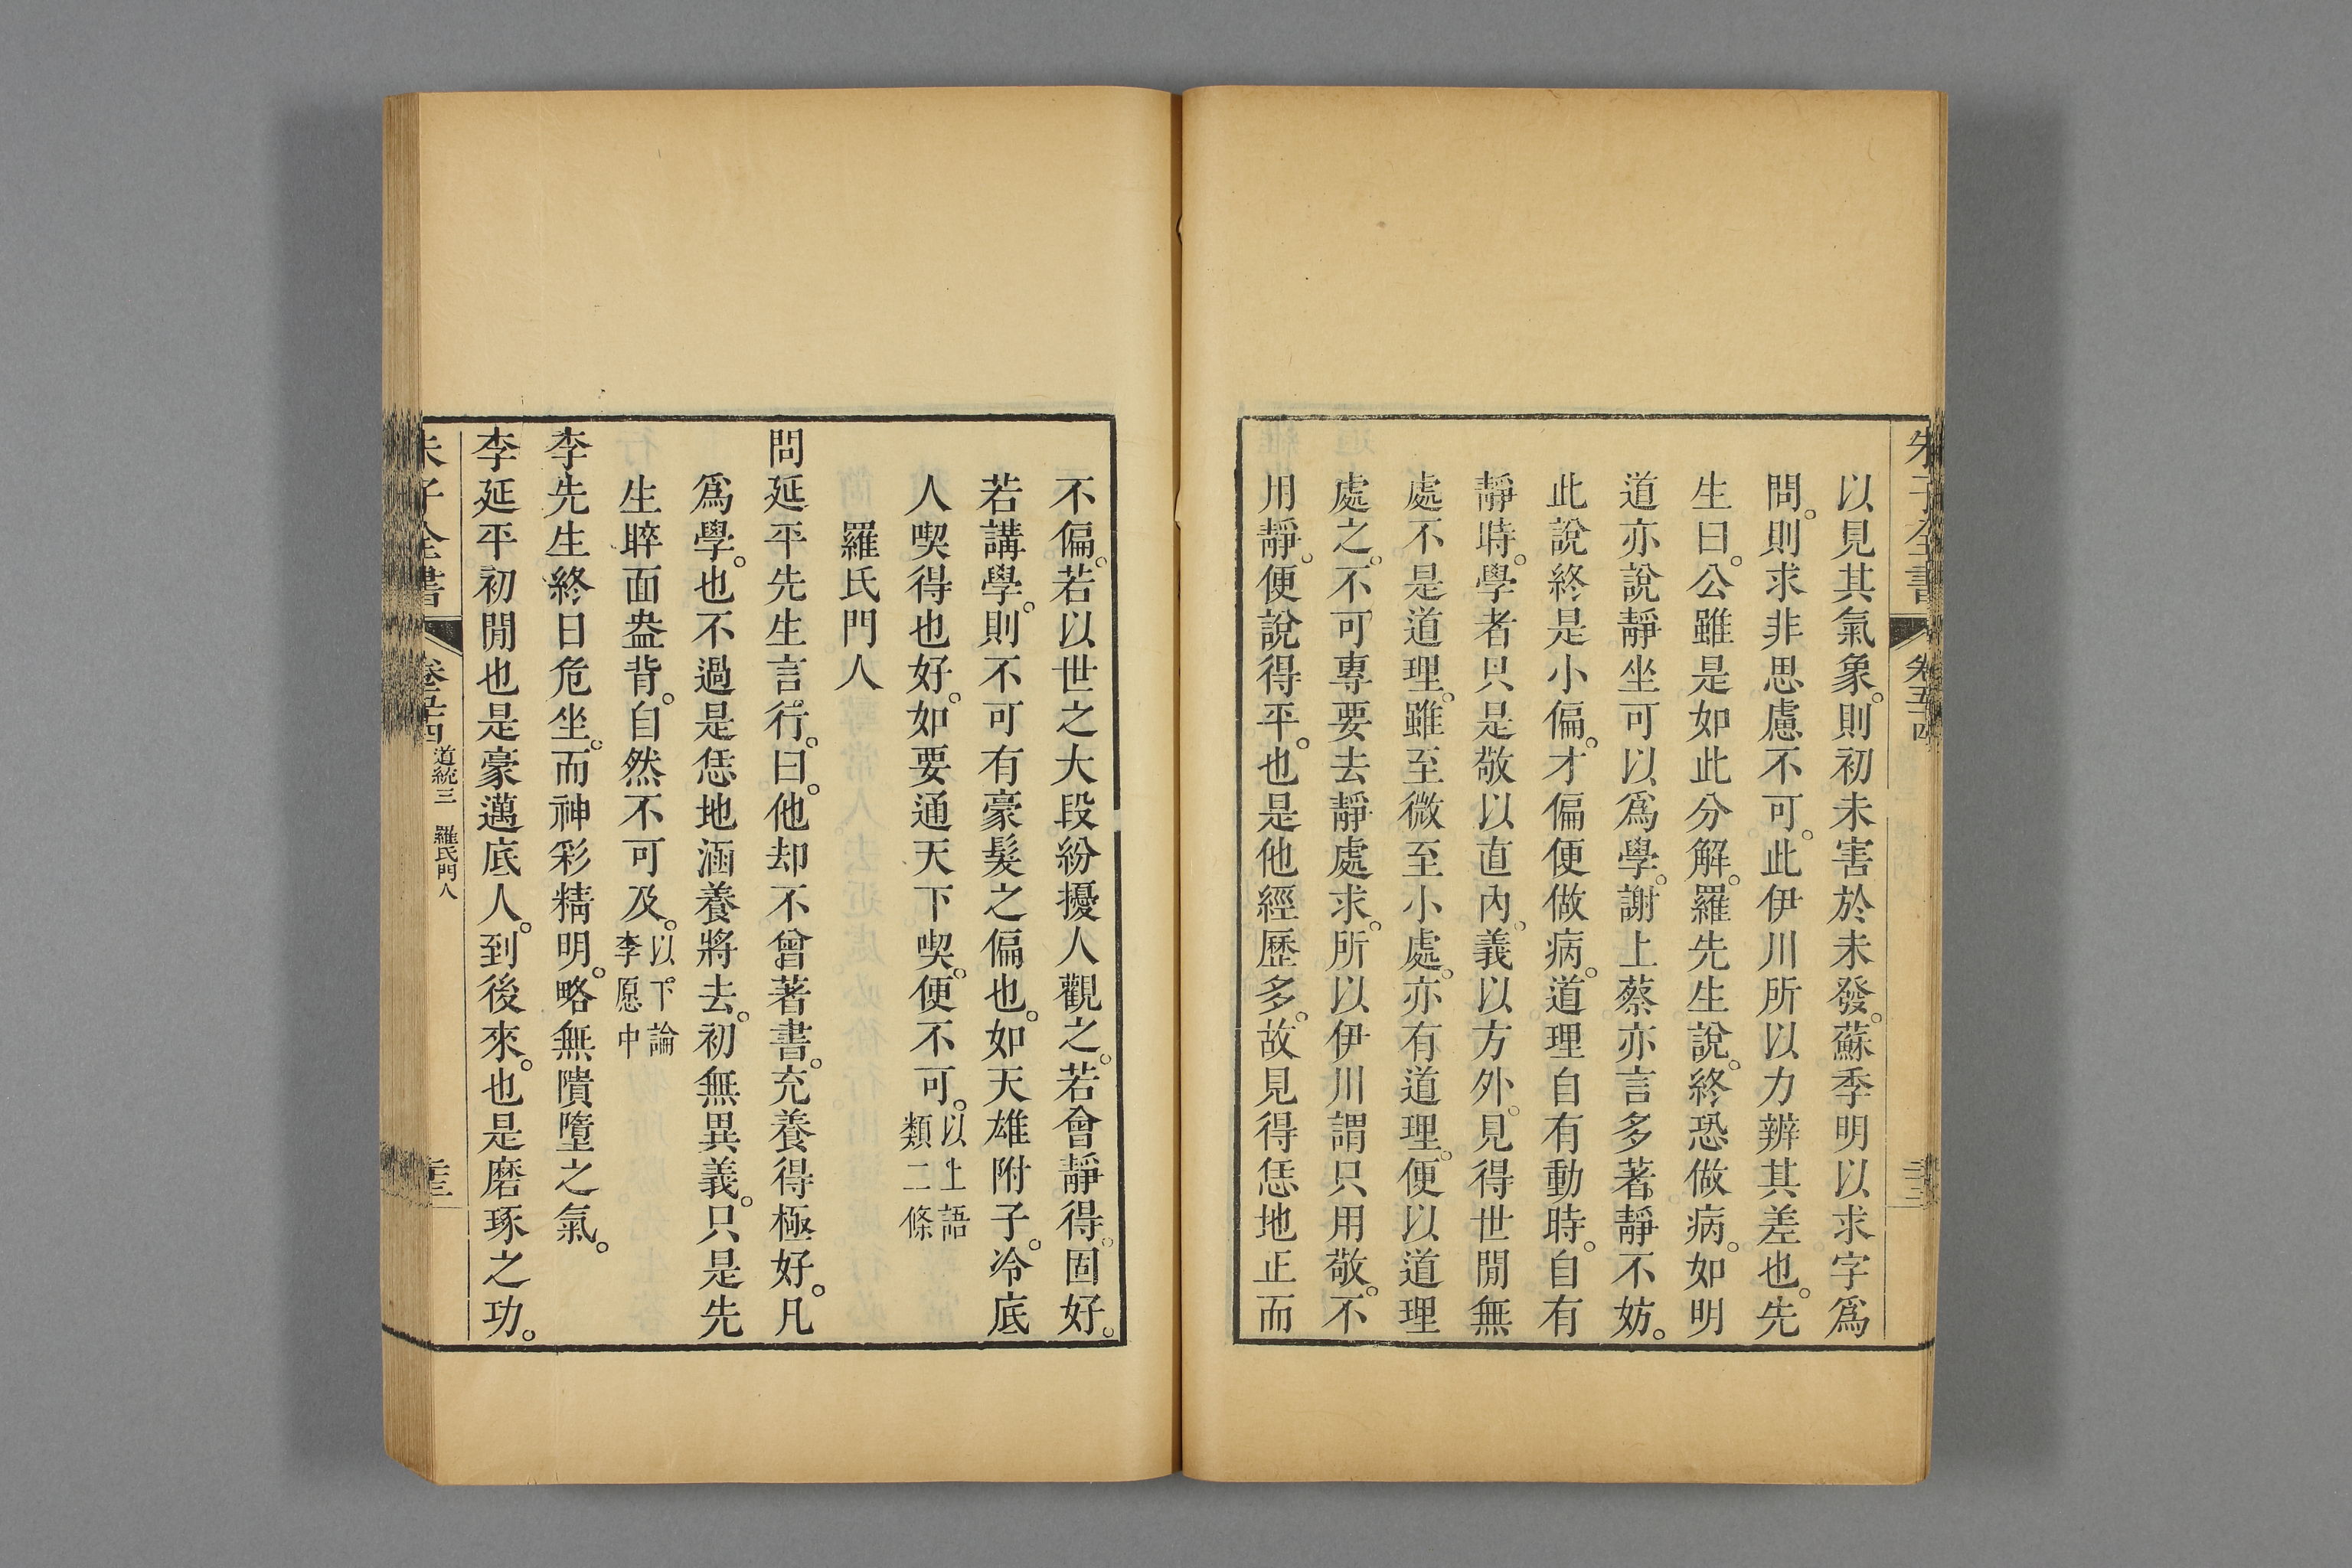 朱子全書 卷五十四
以見其氣象。則初未害於未發。蘇季明以求字爲
問。則求非思慮不可。此伊川所以力辨其差也。先
生曰。公雖是如此分解。羅先生說。終恐做病。如明
道亦說靜坐可以爲學。謝上蔡亦言多著靜不妨。
此說終是小偏。才偏便做病。道理自有動時。自有
靜時。學者只是敬以直內。義以方外。見得世閒無
處不是道理。雖至微至小處。亦有道理。便以道理
處之。不可專要去靜處求。所以伊川謂只用敬。不
用靜。便說得平。也是他經歷多。故見得恁地正而
不偏。若以世之大段紛擾人觀之。若會靜得。固好。
若講學。則不可有豪髮之偏也。如天雄附子。冷底
人喫得也好。如要通天下喫。便不可。以上語類二條
羅氏門人
問延平先生言行。曰。他却不曾著書。充養得極好。凡
爲學。也不過是恁地涵養將去。初無異義。只是先
生睟面盎背。自然不可及。以下論李愿中
李先生終日危坐。而神彩精明。略無隤墮之氣。
李延平初閒也是豪邁底人。到後來。也是磨琢之功。
朱子全書 卷五十四 道統三 羅氏門人